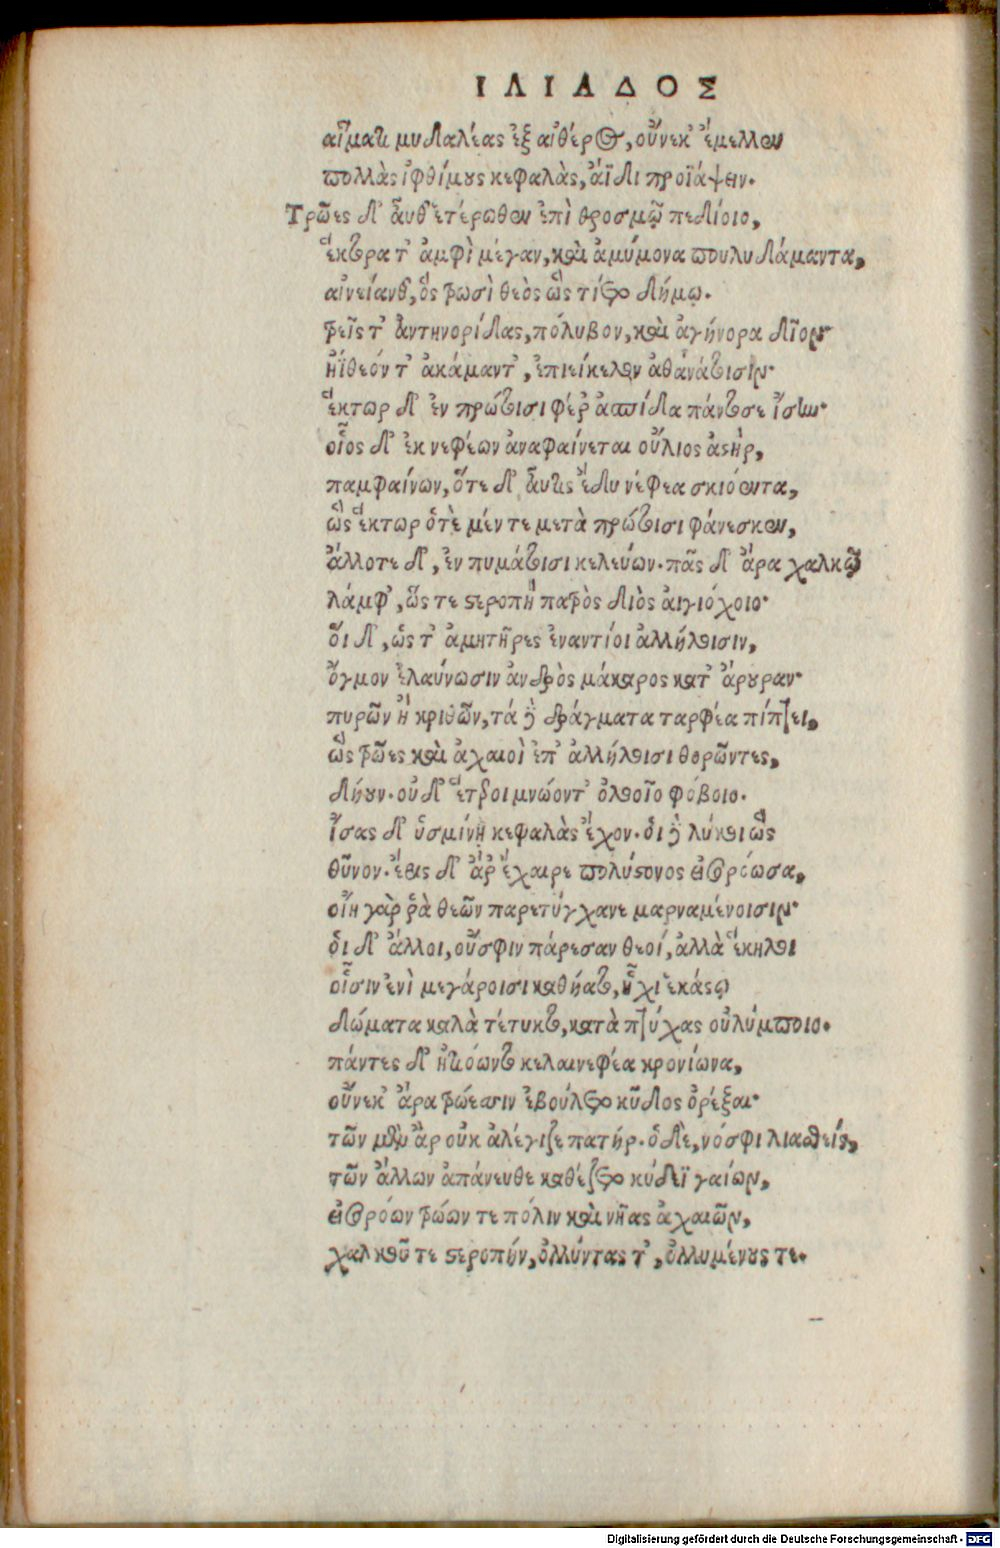 ΙΛΙΑΔΟΣ
αἵματι μυδαλέας ἐξ αἰθέρος, οὕνεκ' ἔμελλεν
πολλὰς ἰφθίμους κεφαλὰς, ἄϊδι προϊάψειν.
Τρῶες δ' αὖθ' ἑτέρωθεν ἐπὶ θρωσμῷ πεδίοιο,
ἕκτορά τ' ἀμφὶ μέγαν, καὶ ἀμύμονα πουλυδάμαντα,
αἰνείανθ', ὃς τρωσὶ θεὸς ὣς τίετο δήμῳ.
τρεῖς τ' ἀντηνορίδας, πόλυβον, καὶ ἀγήνορα δῖον
ἠΐθεόν τ' ἀκάμαντ', ἐπιείκελον ἀθανάτοισιν·
ἕκτωρ δ' ἐν πρώτοισι φέρ' ἀσπίδα πάντοσε ἴσην·
οἷος δ' ἐκ νεφέων ἀναφαίνεται οὔλιος ἀστὴρ,
παμφαίνων, ὅτε δ' αὖτις ἔδυ νέφεα σκιόεντα,
ὣς ἕκτωρ ὁτὲ μέν τε μετὰ πρώτοισι φάνεσκεν,
ἄλλοτε δ', ἐν πυμάτοισι κελεύων. πᾶς δ' ἄρα χαλκῷ
λάμφ', ὥς τε στεροπὴ πατρὸς διὸς αἰγιόχοιο·
οἱ δ', ὥς τ' ἀμητῆρες ἐναντίοι ἀλλήλοισιν,
ὄγμον ἐλαύνωσιν ἀνδρὸς μάκαρος κατ' ἄρουραν·
πυρῶν ἢ κριθῶν, τὰ δὲ δράγματα ταρφέα πίπτει,
ὣς τρῶες καὶ ἀχαιοὶ ἐπ' ἀλλήλοισι θορῶντες,
δῄουν. οὐδ' ἕτεροι μνώοντ' ὀλοοῖο φόβοιο.
ἴσας δ' ὑσμίνη κεφαλὰς ἔχον. οἱ δὲ λύκοι ὣς
θῦνον. ἔρις δ' ἄρ' ἔχαιρε πολύστονος εἰσορόωσα,
οἴη γάρ ῥα θεῶν παρετύγχανε μαρναμένοισιν·
οἱ δ' ἄλλοι, οὔ σφιν πάρεσαν θεοί, ἀλλὰ ἕκηλοι
οἷσιν ἐνὶ μεγάροισι καθήατο, ἧχι ἑκάστῳ
δώματα καλὰ τέτυκτο, κατὰ πτύχας οὐλύμποιο.
πάντες δ' ᾐτιόωντο κελαινεφέα κρονίωνα,
οὕνεκ' ἄρα τρώεσσιν ἐβούλετο κῦδος ὀρέξαι·
τῶν μὲν ἄρ οὐκ ἀλέγιζε πατήρ. ὁ δὲ, νόσφι λιασθείς,
τῶν ἄλλων ἀπάνευθε καθέζετο κύδεϊ γαίων,
εἰσορόων τρώων τε πόλιν καὶ νῆας ἀχαιῶν,
χαλκοῦ τε στεροπήν, ὀλλύντας τ', ὀλλυμένους τε.
Digitalisierung gefördert durch die Deutsche Forschungsgemeinschaft - DFG